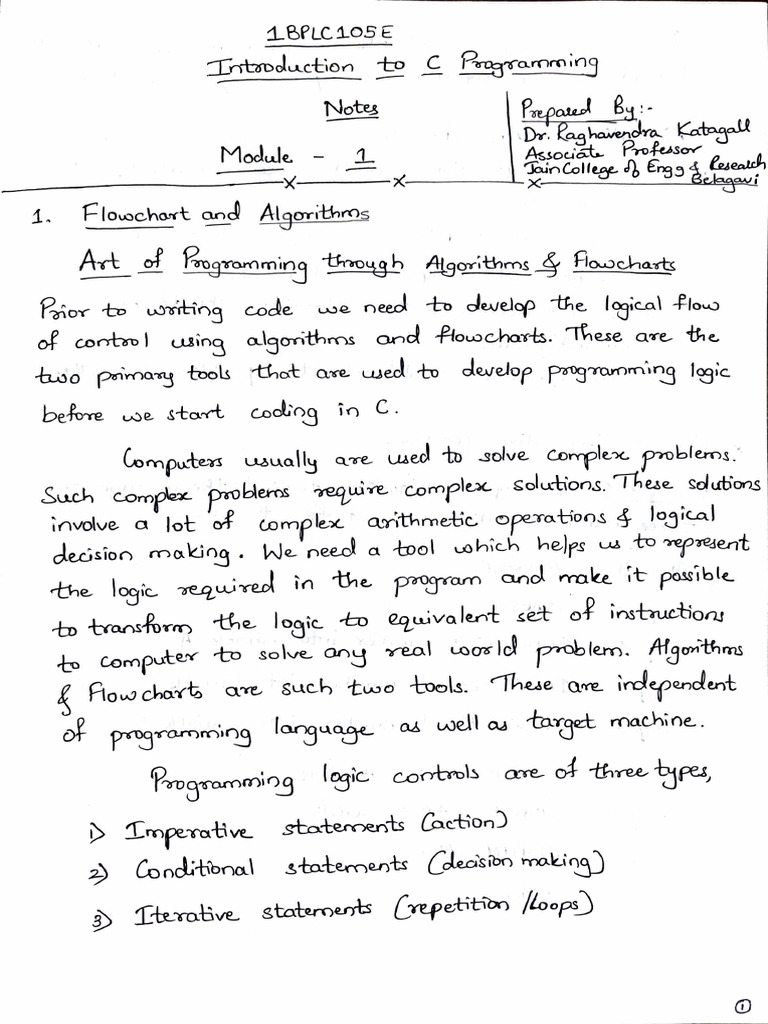 1BPLC105E
Introduction to C Programming
Notes
Module - 1
Prepared By:-
Dr. Raghavendra Katagall
Associate Professor
Jain College of Engg & Research
Belagavi
1. Flowchart and Algorithms
Art of Programming through Algorithms & Flowcharts
Prior to writing code we need to develop the logical flow
of control using algorithms and flowcharts. These are the
two primary tools that are used to develop programming logic
before we start coding in C.
Computers usually are used to solve complex problems.
Such complex problems require complex solutions. These solutions
involve a lot of complex arithmetic operations & logical
decision making. We need a tool which helps us to represent
the logic required in the program and make it possible
to transform the logic to equivalent set of instructions
to computer to solve any real world problem. Algorithms
& Flowcharts are such two tools. These are independent
of programming language as well as target machine.
Programming logic controls are of three types,
1) Imperative statements (action)
2) Conditional statements (decision making)
3) Iterative statements (repetition /Loops)
1